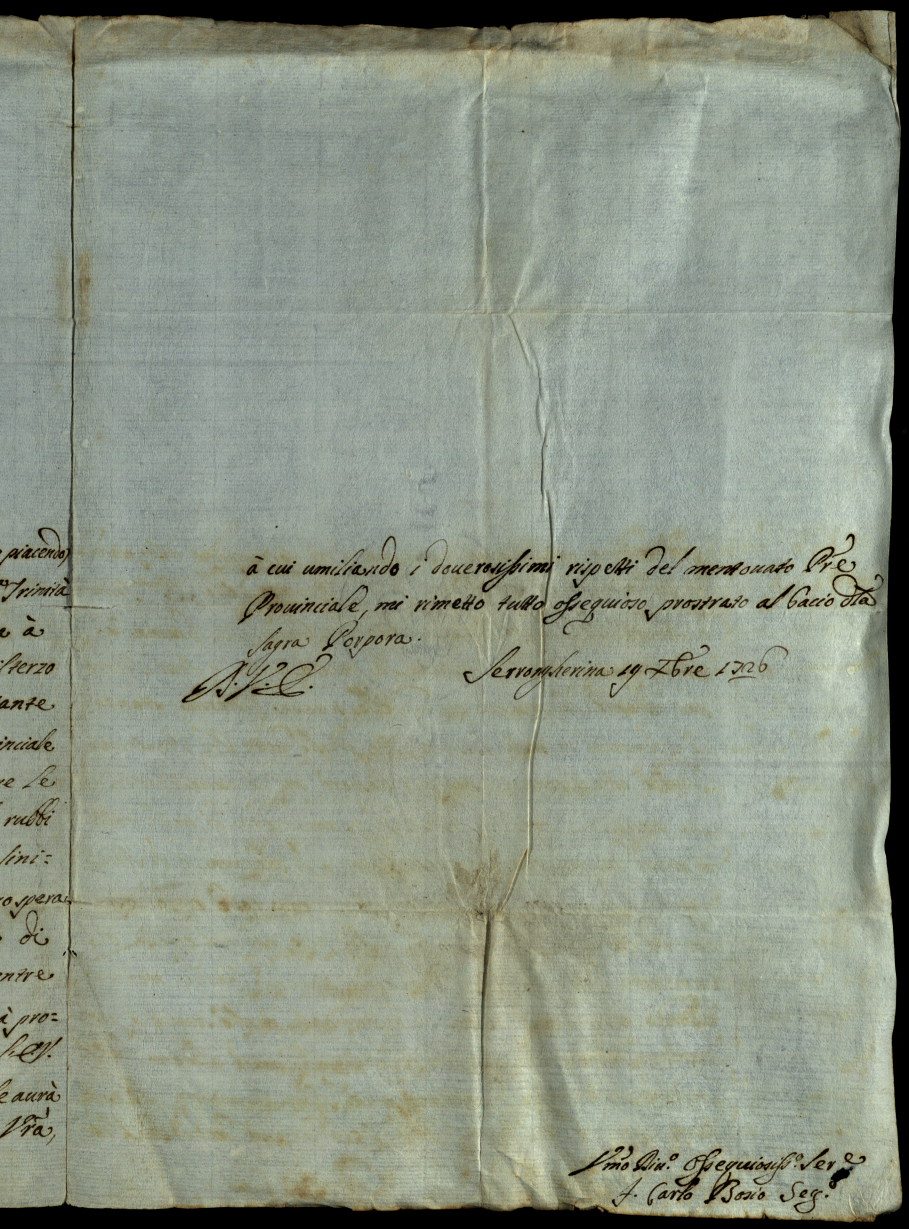 piacendo)
Trinità
à
terzo
ante
inciale
le
rubbi
sini=
spera
di
entre
à pro=
aurà
Vrã,
à cui umiliando i douerosissimi rispetti del mentouato Prẽ
Prouinciale, mi rimetto tutto ossequioso, prostrato al bacio dlla
sagra Porpora.
Serrongherina 19 Xbre 1726
Vmõ Diuº. Ossequiosissº. Serẽ
f. Carlo Bosio Segº.